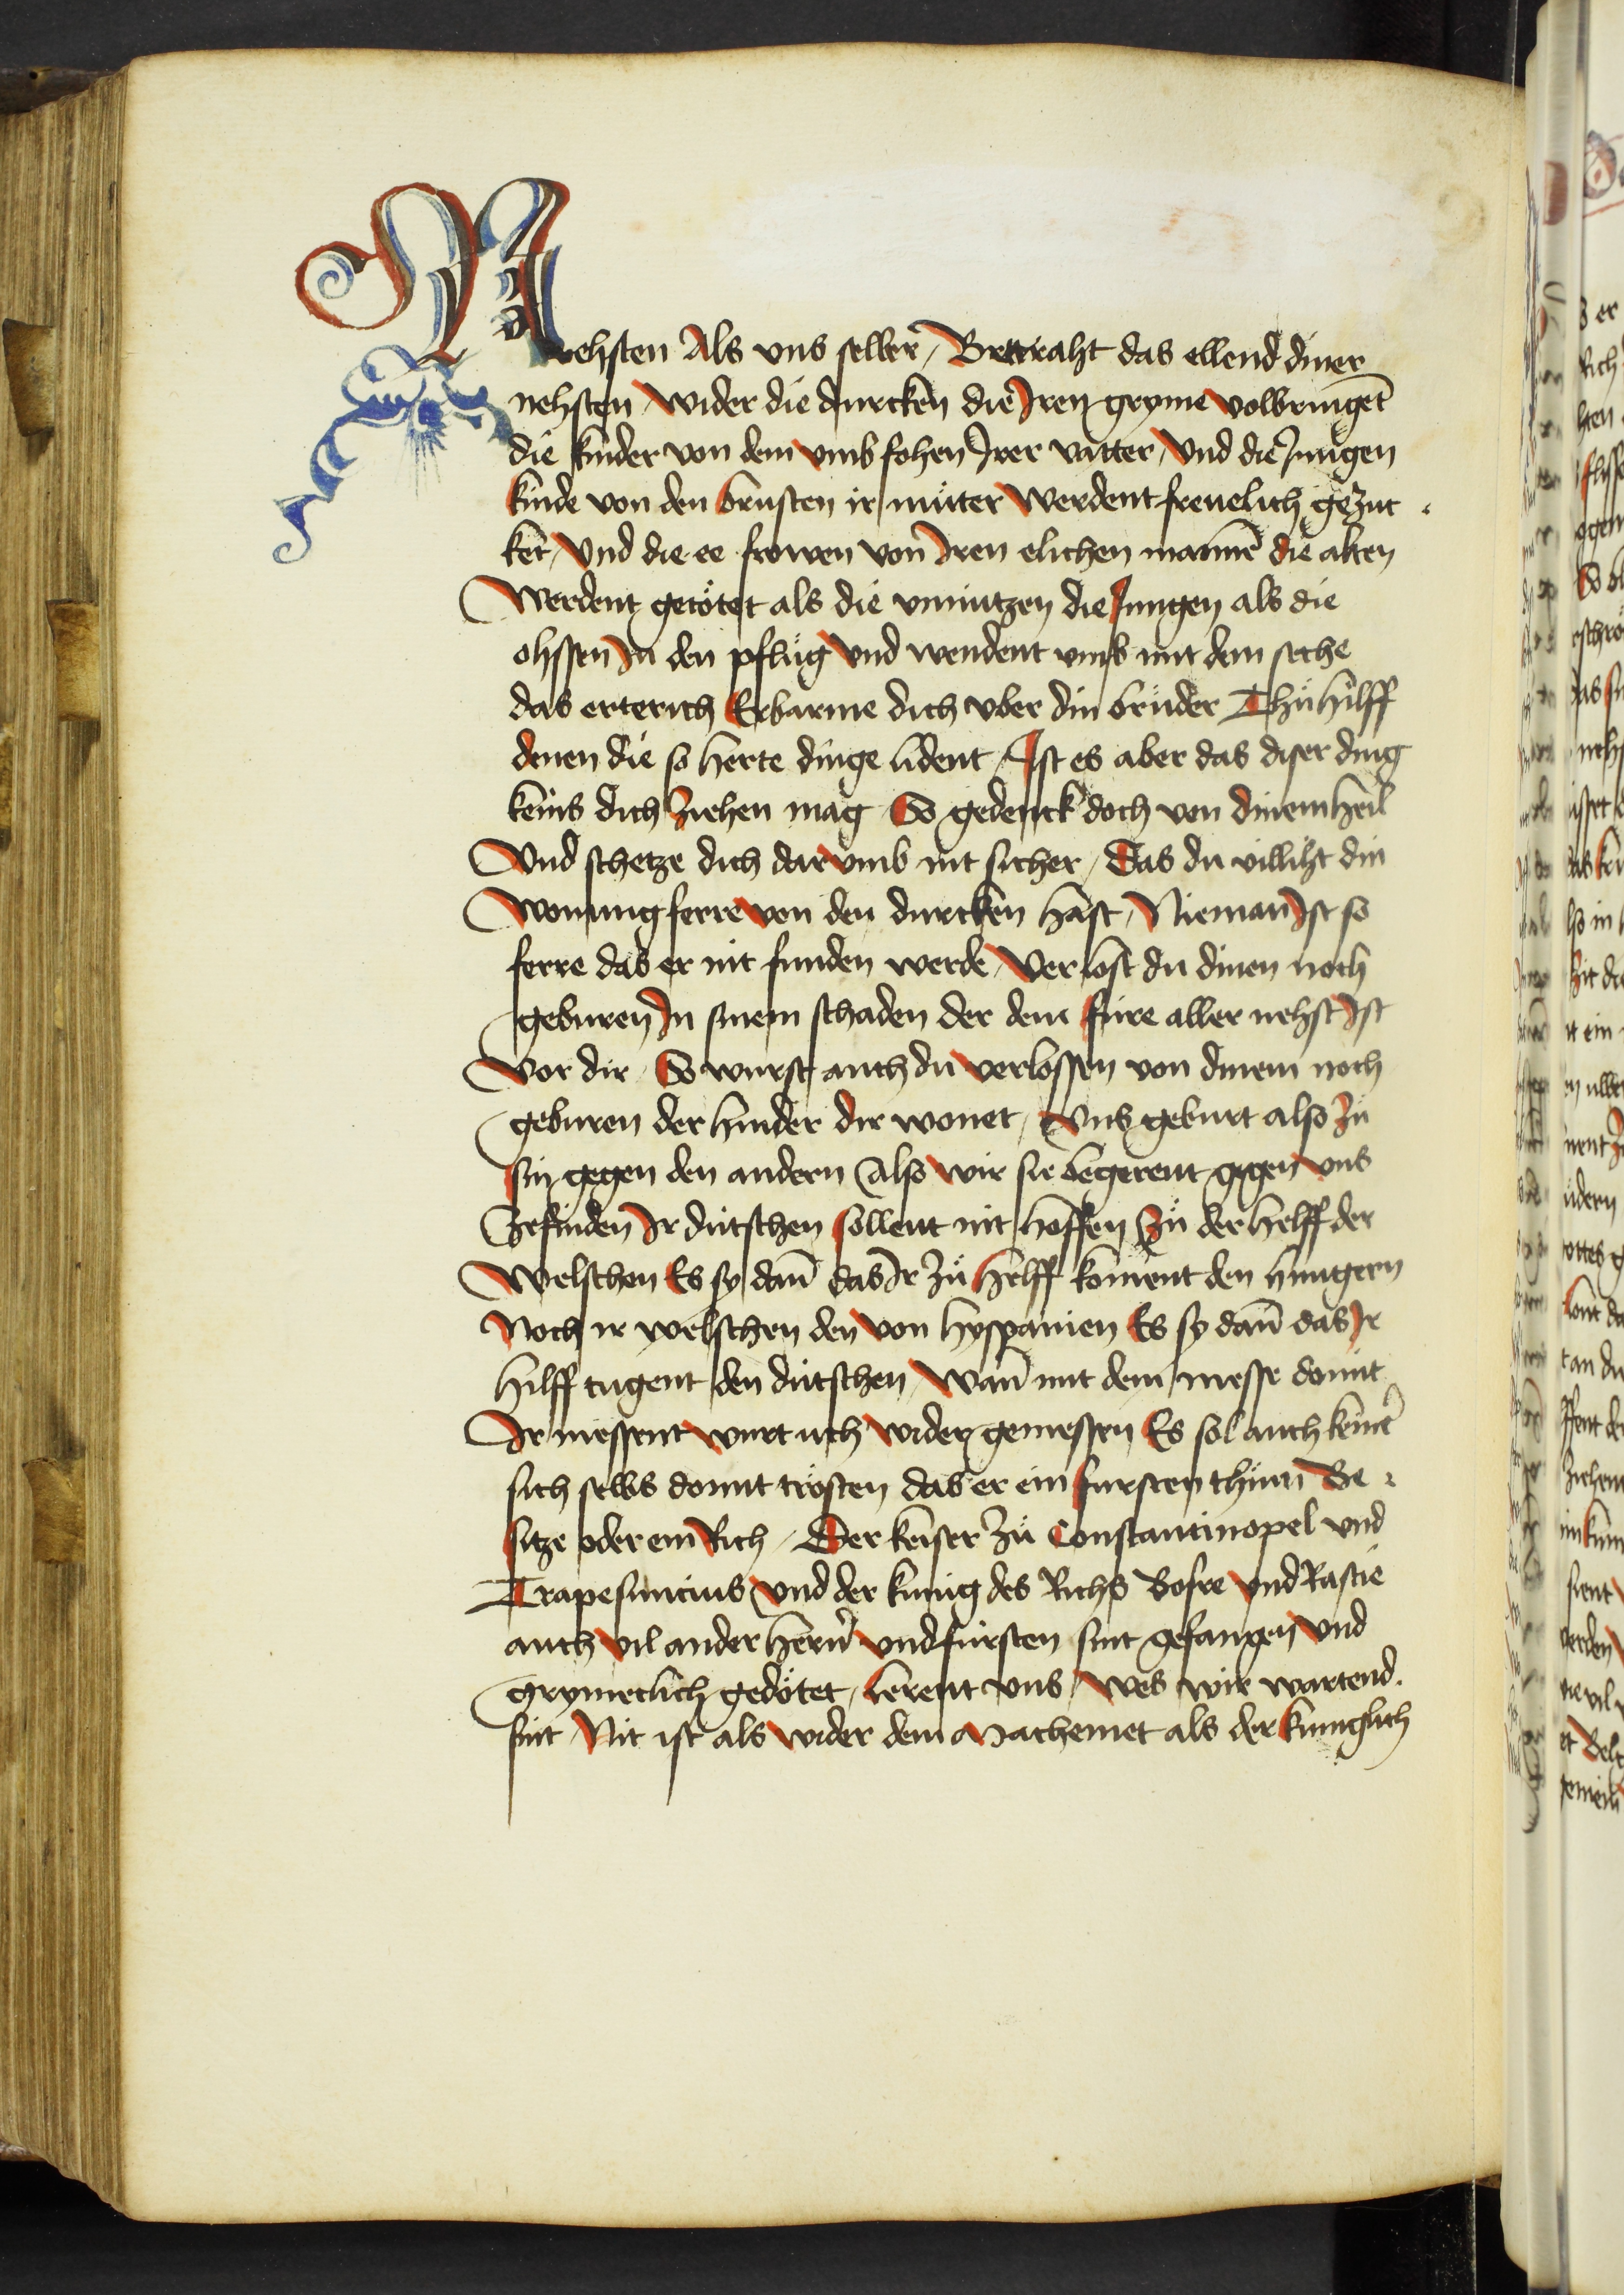 Nehsten Als vns selber / Bettraht das ellend diner
nehsten / wider die durcken die Iren gryme volbringēt
die kinder von dem vmbfohen Irer vatter / Vnd die Jungen
kinde von den brusten ir mütter werdent freuelich gezut
ket / Vnd die ee frowen von Iren elichen mannē die alten
Werdent getötet als die vnnützen die Jungen als die
ohssen In den pflüg Vnd wendent vmb mit dem seche
das erterich Erbarme dich vber din brüder Thü hilff
denen die so herte dinge lident / Ist es aber das diser ding
keins dich ziehen mag So gedenck doch von dinem heil
Vnd schetze dich dar vmb nit sicher / Das du villiht din
Wonung ferre von den durcken hast / Nieman Ist so
ferre das er nit funden werde / Verlost du dinen noch
geburen In sinem schaden der dem füre aller nehst Ist
Vor dir / So wurst auch du verlossen von dinem noch
geburen der hinder dir wonet / Vns geburt also zü
sin gegen den andern Also wir sie begerent gegen vns
Zefinden Ir dütschen sollent nit hoffen Zü der helff der
Welschen Es sy dañ das Ir zü helff koment den hungern
Noch ir welschen den von hyspanien Es sy dañ das Ir
hilff tugent den dütschen / Wañ mit dem messe domit
Ir messent wurt uch wider gemessen Es sol auch keiner
sich selbs domit trösten das er ein fursten thüm Be
sitze oder ein Rich / Der keiser zü Constantinopel vnd
Trapesuncius Vnd der kunig des Richs Bosre vnd Rastie
auch vil ander hern̄ vnd fürsten sint gefangen vnd
grymeclich gedötet / lerent vns / wes wir wartend.
sint / Nit ist als wider dem Machemet als der kuniglich